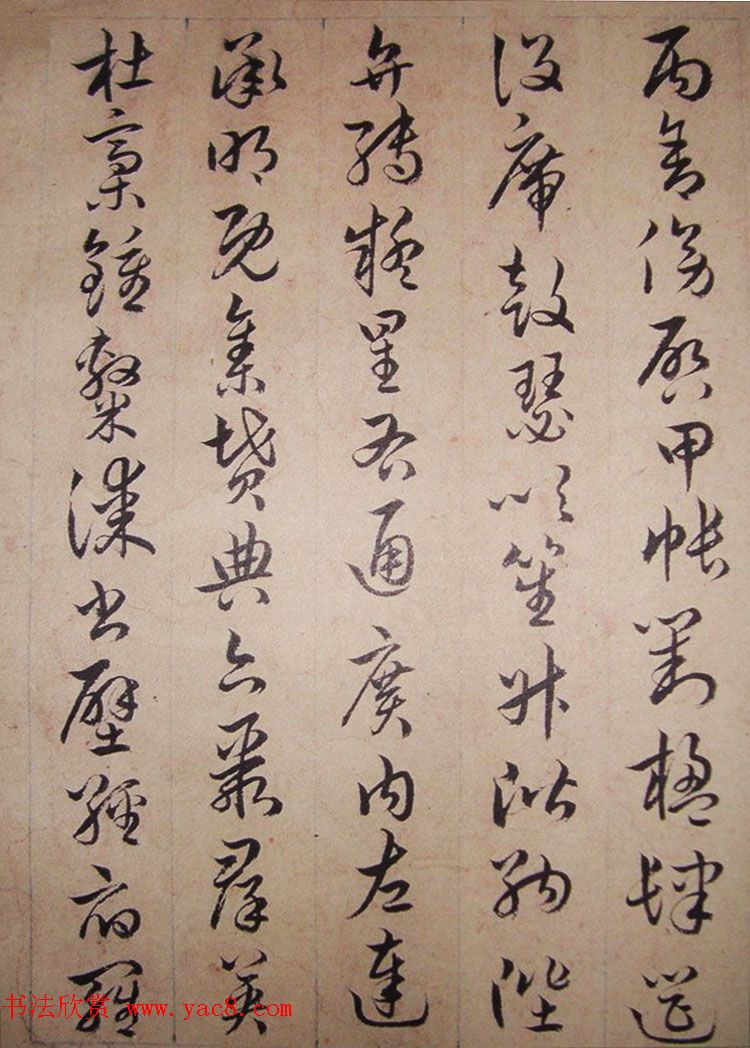 丙舍傍啓甲帳對楹肆筵
設席鼓瑟吹笙升階納陛
弁轉疑星右通廣內左達
承明既集墳典亦聚群英
杜槀鍾隸漆書壁經府羅
书法欣赏 www.yac8.com